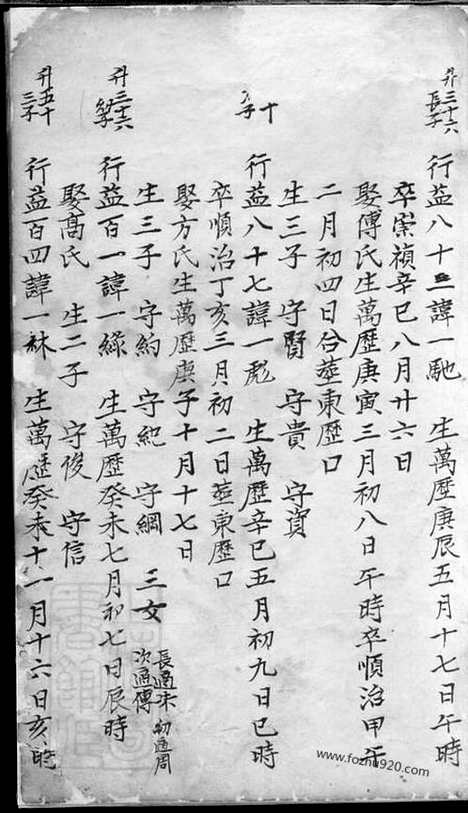 升三十六
長子
行益八十三諱一馳 生萬歷庚辰五月十七日午時
卒崇禎辛巳八月廿六日
娶傅氏生萬歷庚寅三月初八日午時卒順治甲午
二月初四日合塟東歷口
生三子 守賢 守貴 守資
十
子
行益八十七諱一彪 生萬歷辛巳五月初九日巳時
卒順治丁亥三月初二日塟東歷口
娶方氏生萬歷庚子十月十七日
生三子 守約 守紀 守綱 三女
長適朱
次適傅
初適周
升三十六
行益百一諱一綠 生萬歷癸未七月初七日辰時
娶高氏 生二子 守俊 守信
升五十
三子
行益百四諱一秝 生萬歷癸未十一月十六日亥時
www.fozhu920.com